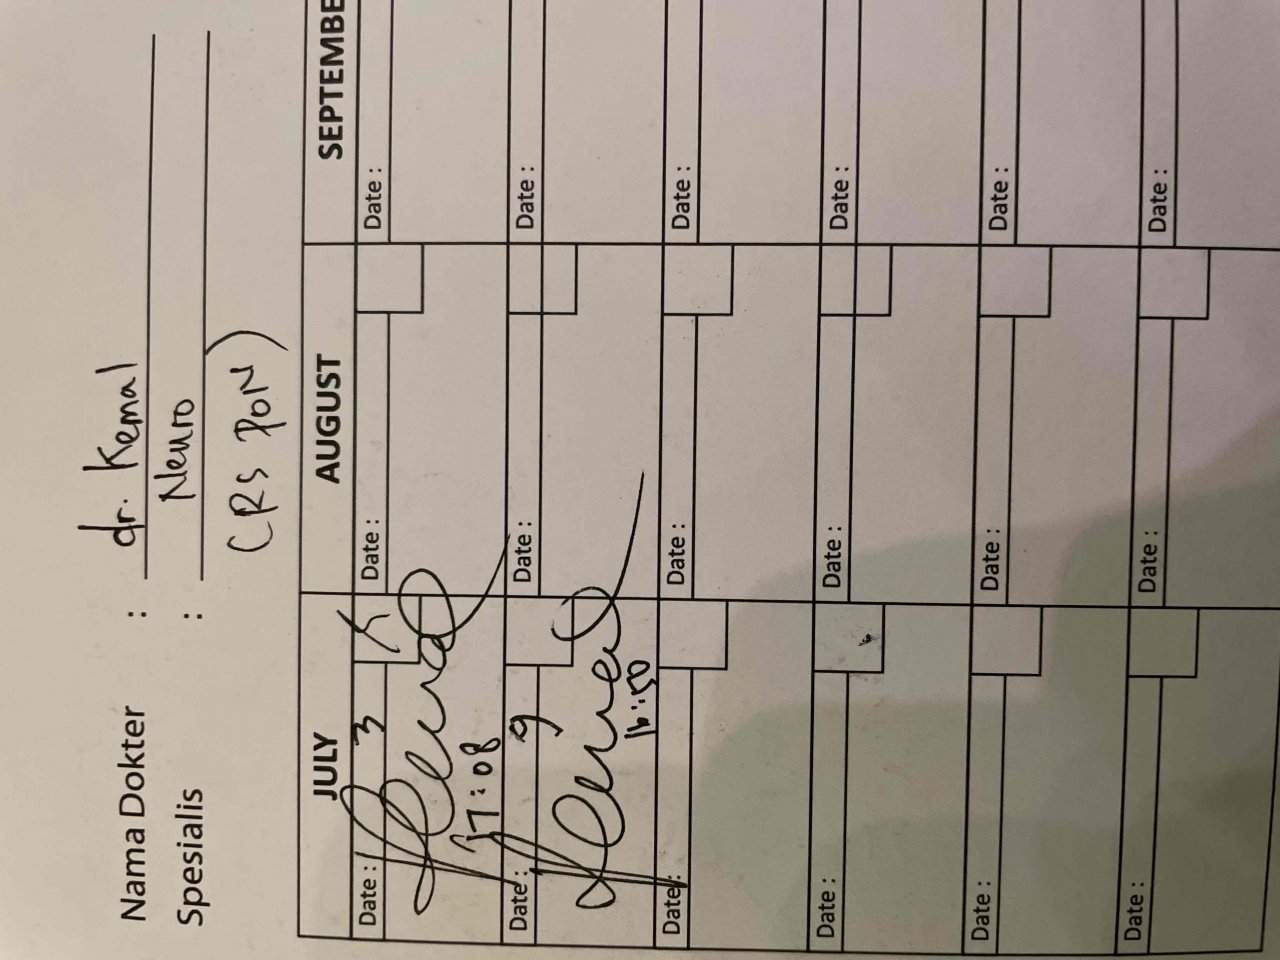 Nama Dokter : dr. Kemal
Spesialis : Neuro
(RS PON)
JULY AUGUST SEPTEMBE
Date : 3 Date : Date :
17:08
Date : 9 Date : Date :
16:50
Date : Date : Date :
Date : Date : Date :
Date : Date : Date :
Date : Date : Date :